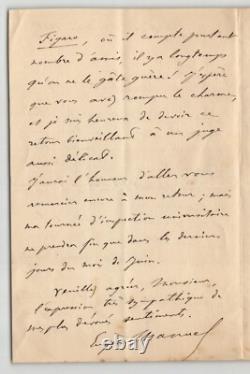 Figaro, où il compte pourtant
nombre d'amis, il y a longtemps
qu'on ne le gâte guère ! J'espère
que vous avez rompu le charme,
et je suis heureux de devoir ce
retour bienveillant à un juge
aussi délicat.
J'aurai l'honneur d'aller vous
remercier encore à mon retour ; mais
ma tournée d'inspection universitaire
ne prendra fin que dans les derniers
jours du mois de Juin.
Veuillez agréer, Monsieur,
l'expression très sympathique de
mes plus dévoués sentiments.
Eug. Manuel